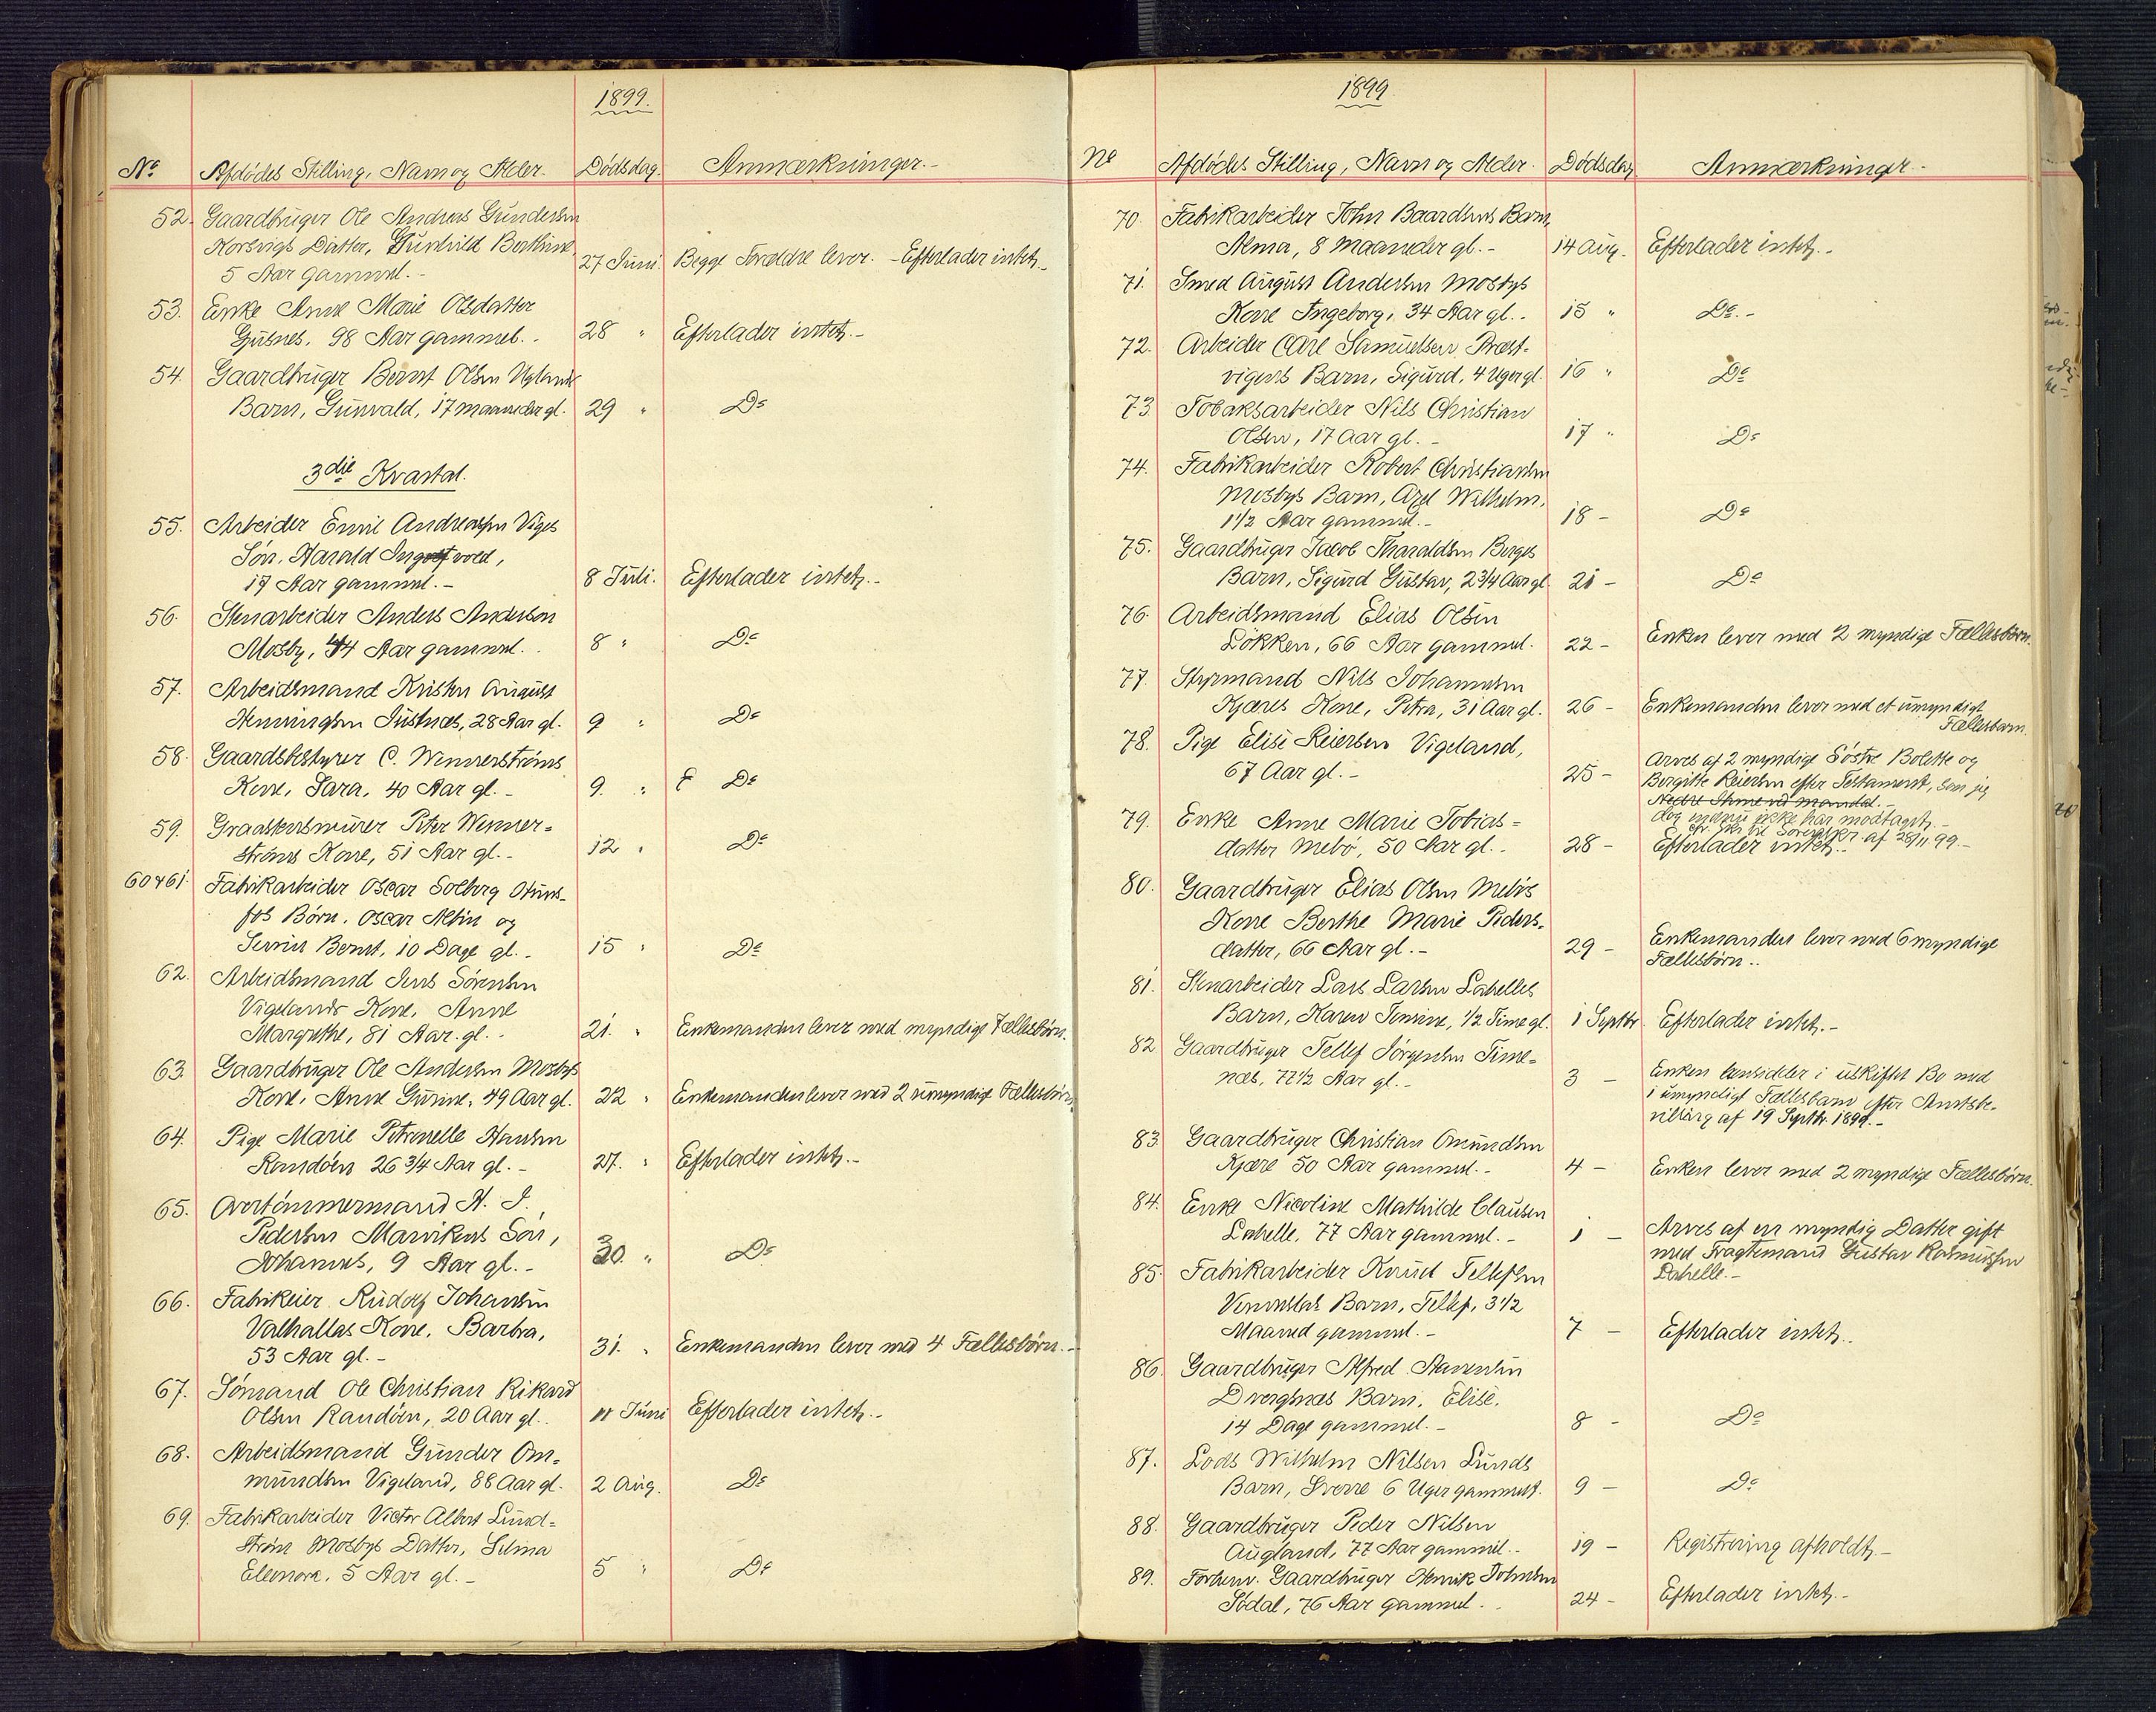 1899.
No Afdødes Stilling, Navn og Alder. Dødsdag. Anmærkninger.-
52. Gaardbruger Ole Andreas Gundersen
Korsvigs Datter, Gunhild Berthine
5 Aar gammel.- 27 Juni. Begge Forældre lever. - Efterlader intet.-
53. Enke Anne Marie Olsdatter
Gusnes, 98 Aar gammel.. 28 " Efterlader intet.-
54. Gaardbruger Bernt Olsen Uglands
Barn, Gunvald, 17 maaneder gl. 29 " Do
3die Kvartal.
55. Arbeider Emil Andreassen Viges
Søn, Harald Ingvold,
17 Aar gammel.- 8 Juli. Efterlader intet.-
56. Stenarbeider Anders Anderson
Mosby, 44 Aar gammel.. 8 " Do
57. Arbeidsmand Kristen August
Henningsen Justnæs, 28 Aar gl. 9 " Do
58. Gaardsbestyrer C. Wennerstrøms
Kone, Sara, 40 Aar gl.- 9. " Do
59. Graastensmurer Peter Wenner=
strøms Kone, 51 Aar gl.- 12 " Do
60 & 61 Fabrikarbeider Oscar Solberg
fos Børn, Oscar Albin og
Bernt, 10 Dage gl.. 15 " Do
62. Arbeidsmand Jens Sørensen
Vigelands Kone, Anne
Margrethe, 81 Aar. gl.. 21. " Enkemanden lever med myndige Fællesbørn.
63. Gaardbruger Ole Andersen Mosbys
Kone, Anne Gurine, 49 Aar gl. 22 " Enkemanden lever med 2 umyndige Fællesbørn
64. Pige Marie Petronelle Hansen
Randøen 26 3/4 Aar gl.- 27. " Efterlader intet.-
65. Overtømmermand H. J.
Pedersen Marvikens Søn,
Johannes, 9 Aar gl.- 30. " Do
66. Fabrikeier Rudolf Johansen
Valhallas Kone, Barbra,
53 Aar gl.- 31. " Enkemanden lever med 4 Fællesbørn.-
67. Sømand Ole Christian Rikard
Olsen Randøen, 20 Aar gl.. Juni Efterlader intet.-
68. Arbeidsmand Gunder Om=
mundsen Vigeland, 88 Aar gl. 2 Aug. Do
69. Fabrikarbeider Victor Albert Lund=
strøm Mosbys Datter, Selma
Eleonora, 5 Aar gl.- 5 " Do
1899
No Afdødes Stilling, Navn og Alder. Dødsdag Anmærkninger.-
70. Fabrikarbeider John Baardsens Barn,
Alma, 8 Maaneder gl.- 14 Aug. Efterlader intet.-
71. Smed August Andersen Mosbys
Kone Ingeborg, 34 Aar gl.. 15 " Do.-
72. Arbeider Carl Samuelsen Præst=
vigens Barn, Sigurd, 4 Uger gl. 16 " Do
73 Tobaksarbeider Nils Christian
Olsen, 17 Aar gl.- 17 " Do
74. Fabrikarbeider Robert Christiansen
Mosbys Barn, Axel Wilhelm,
1 1/2 Aar gammel.- 18 - Do
75. Gaardbruger Jacob Tharaldsen Berges
Barn, Sigurd Gustav, 2 3/4 Aar gl 21 - Do
76. Arbeidsmand Elias Olsen
Løkken, 66 Aar gammel. 22 - Enken lever med 2 myndige Fællesbørn.
77. Styrmand Nils Johannesen
Kjæres Kone, Petra, 31 Aar gl. 26 - Enkemanden lever med et umyndigt
Fællesbarn.
78. Pige Elise Reiersen Vigeland,
67 Aar gl.- 25 - Arves af 2 myndige Søstre Bolette og
Bergitte Reiersen efter Testament, som jeg
dog ikke har modtaget.-
af 28/11 99.-
79. Enke Anne Marie Tobias=
datter Mebø, 50 Aar gl.. 28 - Efterlader intet.-
80. Gaardbruger Elias Olsen Mebøs
Kone Berthe Marie Peders=
datter, 66 Aar gl.- 29 - Enkemanden lever med 6 myndige
Fællesbørn..
81. Stenarbeider Lars Larsen Lahelles
Barn, Karen 1/2 Time gl. 1 Septbr. Efterlader intet.-
82 Gaardbruger Tellef Jørgensen Time=
næs, 72 1/2 Aar gl.- 3 - Enken hensidder i uskiftet Bo med
1 umyndigt Fællesbarn efter Amtsbe=
villing af 19 Septbr. 1899.-
83. Gaardbruger Christian Omundsen
Kjære 50 Aar gammel.- 4 - Enken lever med 2 myndige Fællesbørn.
84. Enke Nicoline Mathilde Clausen
Lahelle, 77 Aar gammel.- 1 - Arves af en myndig Datter gift
med Fragtemand Gustav Rasmussen
Lahelle.-
85. Fabrikarbeider Knud Tellefsen
Venneslas Barn, Tellef, 3 1/2
Maaned gammel.- 7 - Efterlader intet..
86. Gaardbruger Alfred Aanensen
Dvergsnæs Barn, Elise,
14 Dage gammel.- 8 - Do
87. Lods Wilhelm Nilsen Lunds
Barn, Sverre 6 Uger gammelt. 9 - Do
88. Gaardbruger Peder Nilsen
Augland, 77 Aar gammel.. 19 - Registrering afholdt.-
89. Forhenv. Gaardbruger Henrik Johnsen
Sødal, 76 Aar gammel.. 24 - Efterlader intet.-